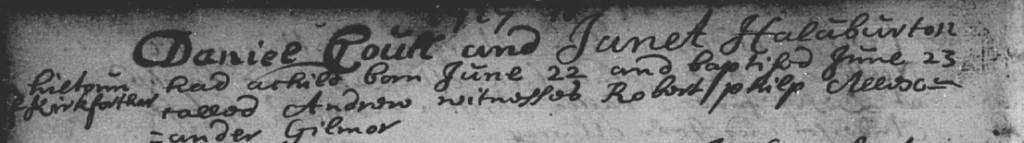 Daniel Coult and Janet Halaburton
hiltoun had a child born June 22 and baptised June 23
of Kirkforthar called Andrew witnesses Robert philp Allexa-
=ander Gilmor